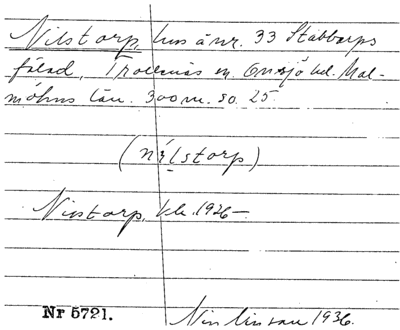 Nilstorp, hus å nr. 33 Stabbarps
fälad, Trollenäs sn. Onsjö hd. Mal-
möhus län. 300 m. so. 25.
(nilstorp)
Nilstorp, kk. 1926–
Nr 5721. 1936.